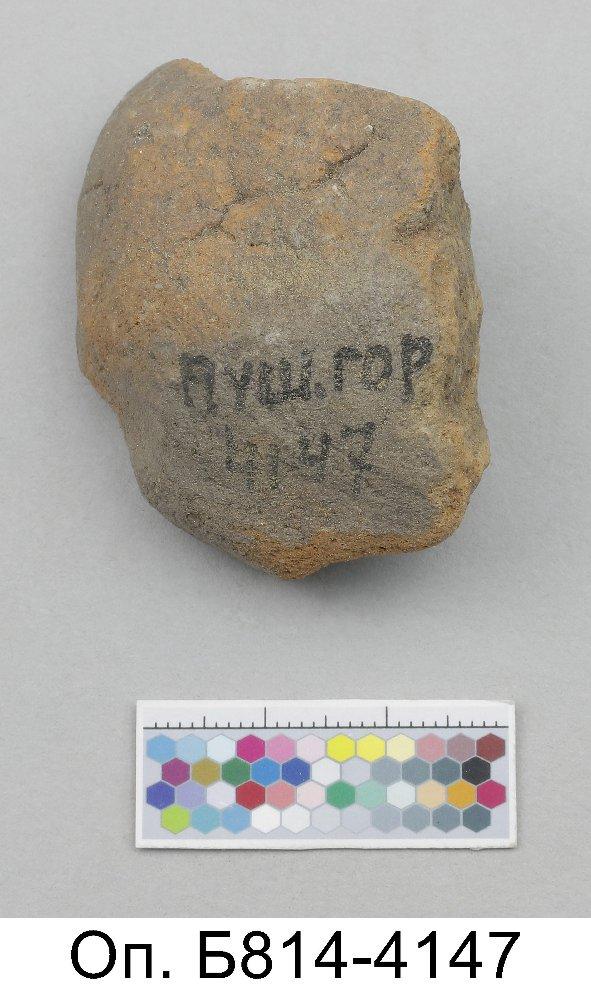 ПУШ.ГОР
4147
Оп. Б814-4147